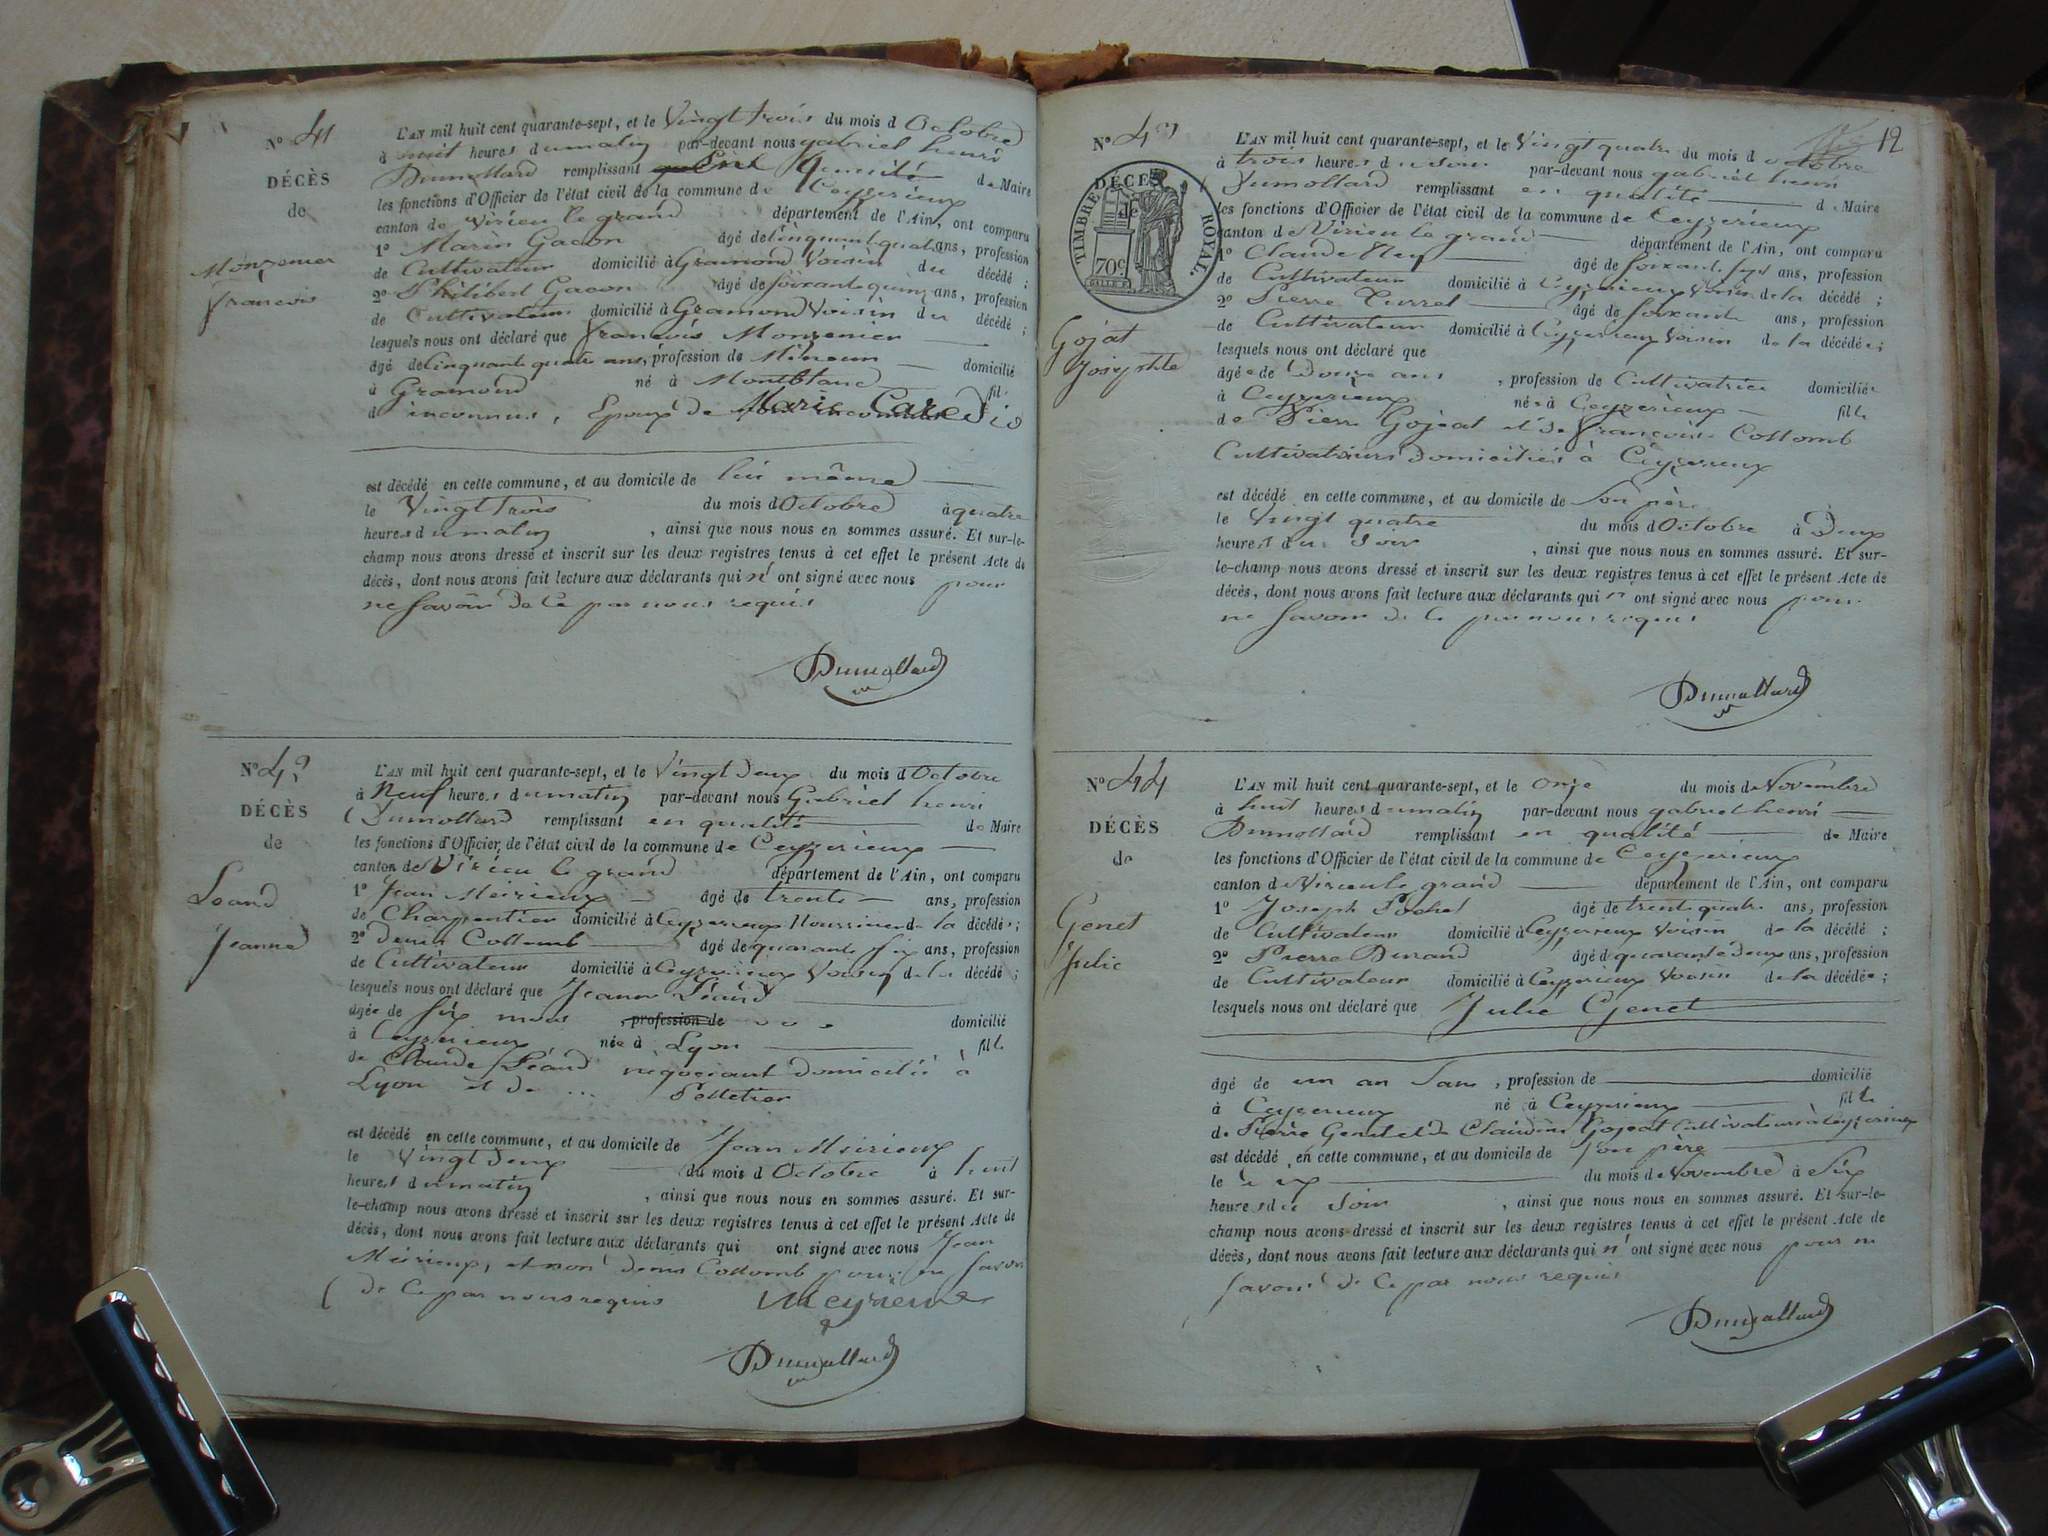 N° 41
DÉCÈS
de
Monzenier
François
L'AN mil huit cent quarante-sept, et le Vingt trois du mois d Octobre
à huit heures du matin par-devant nous gabriel henri
Dumollard remplissant en qualité de Maire
les fonctions d'Officier de l'état civil de la commune de Ceyzerieux
canton de Virieu le grand département de l'Ain, ont comparu
1° Marin Gacon âgé de Cinquante quatre ans, profession
de Cultivateur domicilié à Gramond Voisin du décédé ;
2° Philibert Gacon âgé de soixante quinze ans, profession
de Cultivateur domicilié à Gramond Voisin du décédé ;
lesquels nous ont déclaré que François Monzenier
âgé de Cinquante quatre ans, profession de Mineur domicilié
à Gramond né à Montblanc fil
d inconnus, Epoux de Marie
est décédé en cette commune, et au domicile de lui même
le Vingt trois du mois d Octobre à quatre
heures du matin , ainsi que nous nous en sommes assuré. Et sur-le-
champ nous avons dressé et inscrit sur les deux registres tenus à cet effet le présent Acte de
décès, dont nous avons fait lecture aux déclarants qui n' ont signé avec nous pour
ne savoir de Ce par nous requis
Dumollard
N° 42
DÉCÈS
de
Léand
Jeanne
L'AN mil huit cent quarante-sept, et le Vingt Deux du mois d Octobre
à Neuf heures du matin par-devant nous Gabriel henri
Dumollard remplissant en qualité de Maire
les fonctions d'Officier de l'état civil de la commune de Ceyzerieux
canton de Virieu le grand département de l'Ain, ont comparu
1° Jean Meirieux âgé de trente ans, profession
de Charpentier domicilié à Ceyzerieux Nourricier de la décédée ;
2° Denis Collomb âgé de quarante six ans, profession
de Cultivateur domicilié à Ceyzerieux Voisin de la décédé ;
lesquels nous ont déclaré que Jeanne Léand
âgée de six mois , profession de domicilié
à Ceyzerieux née à Lyon fille
de Claude Léand négociant domicilié à
Lyon et de ... Pelletier
est décédé en cette commune, et au domicile de Jean Meirieux
le Vingt Deux du mois d Octobre à huit
heures du matin , ainsi que nous nous en sommes assuré. Et sur-
le-champ nous avons dressé et inscrit sur les deux registres tenus à cet effet le présent Acte de
décès, dont nous avons fait lecture aux déclarants qui ont signé avec nous Jean
Meirieux, et non denis Collomb pour ne savoir
de Ce par nous requis
Dumollard
12
N° 43
DÉCÈS
de
TIMBRE ROYAL.
70c
Gojat
Josephte
L'AN mil huit cent quarante-sept, et le Vingt quatre du mois d octobre
à trois heures du soir par-devant nous gabriel henri
Dumollard remplissant en qualité de Maire
les fonctions d'Officier de l'état civil de la commune de Ceyzerieux
canton de Virieu le grand département de l'Ain, ont comparu
1° Claude Ney âgé de soixante sept ans, profession
de Cultivateur domicilié à Ceyzerieux Voisin de la décédé ;
2° Pierre Turrel âgé de soixante ans, profession
de Cultivateur domicilié à Ceyzerieux Voisin de la décédée ;
lesquels nous ont déclaré que
âgée de Douze ans , profession de Cultivatrice domiciliée
à Ceyzerieux née à Ceyzerieux fille
de Pierre Gojeat et de Françoise Collomb
Cultivateurs domiciliés à Ceyzerieux
est décédé en cette commune, et au domicile de Son père
le Vingt quatre du mois d Octobre à Deux
heures du Soir , ainsi que nous nous en sommes assuré. Et sur-
le-champ nous avons dressé et inscrit sur les deux registres tenus à cet effet le présent Acte de
décès, dont nous avons fait lecture aux déclarants qui n' ont signé avec nous pour
ne savoir de Ce par nous requis
Dumollard
N° 44
DÉCÈS
de
Genet
Julie
L'AN mil huit cent quarante-sept, et le onze du mois de Novembre
à huit heures du matin par-devant nous gabriel henri
Dumollard remplissant en qualité de Maire
les fonctions d'Officier de l'état civil de la commune de Ceyzerieux
canton de Virieu le grand département de l'Ain, ont comparu
1° Joseph Pochet âgé de trente quatre ans, profession
de Cultivateur domicilié à Ceyzerieux Voisin de la décédé ;
2° Pierre Durand âgé de quarante deux ans, profession
de Cultivateur domicilié à Ceyzerieux Voisin de la décédée ;
lesquels nous ont déclaré que Julie Genet
âgé de un an Sans , profession de domicilié
à Ceyzerieux né à Ceyzerieux fille
de Pierre Genet et de Claudine Gojeat Cultivateurs à Ceyzerieux
est décédé en cette commune, et au domicile de Son père
le dix du mois de Novembre à Six
heures du Soir , ainsi que nous nous en sommes assuré. Et sur-le-
champ nous avons dressé et inscrit sur les deux registres tenus à cet effet le présent Acte de
décès, dont nous avons fait lecture aux déclarants qui n' ont signé avec nous pour ne
savoir de Ce par nous requis
Dumollard